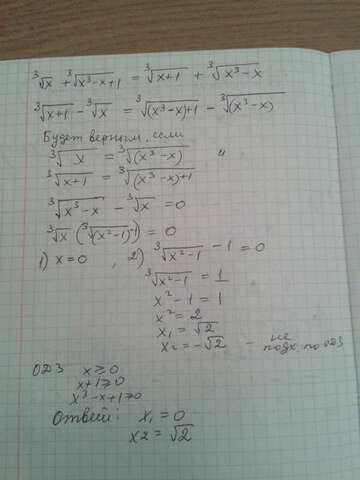 ∛x + ∛(x³-x+1) = ∛(x+1) + ∛(x³-x)
∛(x+1) - ∛x = ∛((x³-x)+1) - ∛(x³-x)
Будет верным, если
∛x = ∛(x³-x) и
∛(x+1) = ∛((x³-x)+1)
∛(x³-x) - ∛x = 0
∛x (∛(x²-1) -1) = 0
1) x=0 , 2) ∛(x²-1) -1 = 0
∛(x²-1) = 1
x²-1 = 1
x² = 2
x₁ = √2
x₂ = -√2 - не подх. по ОДЗ
ОДЗ x ≥ 0
x+1 ≥ 0
x³-x+1 ≥ 0
Ответ: x₁ = 0
x2 = √2